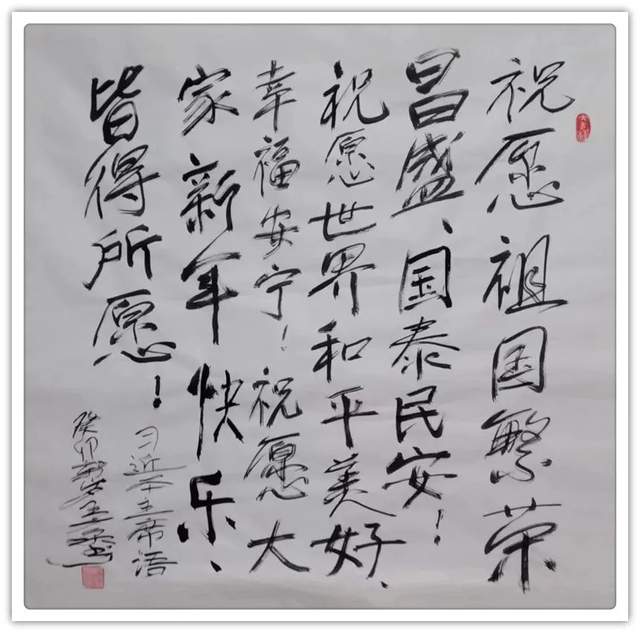 祝愿祖国繁荣
昌盛、国泰民安！
祝愿世界和平美好、
幸福安宁！祝愿大
家新年快乐、
皆得所愿！
习近平主席语
癸卯